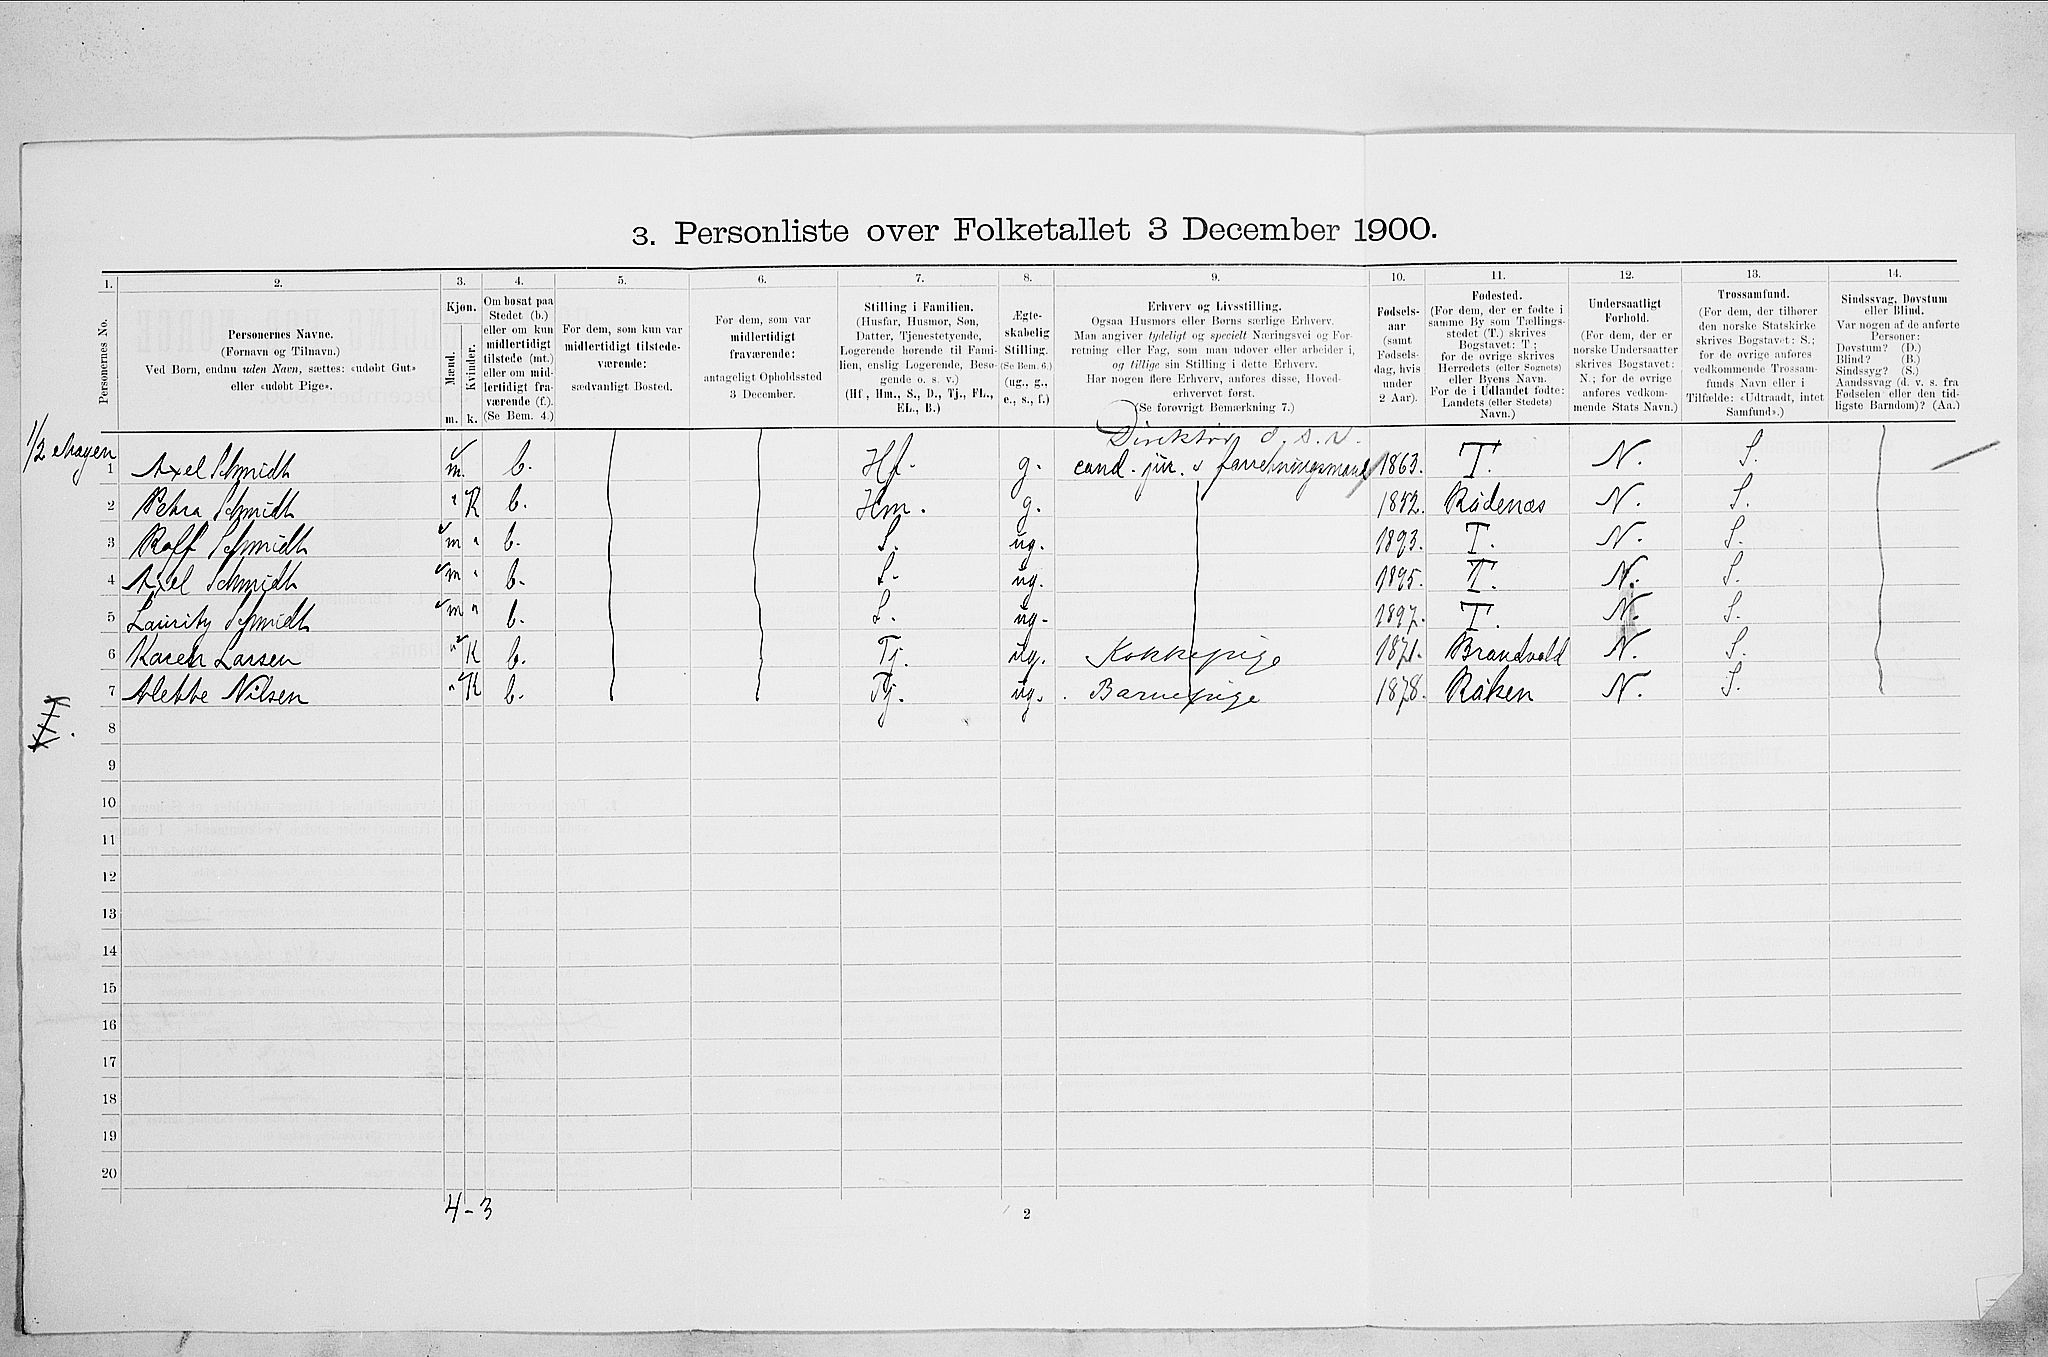 3. Personliste over Folketallet 3 December 1900.
1. 2. 3. 4. 5. 6. 7. 8. 9. 10. 11. 12. 13. 14.
Personernes No.
Personernes Navne.
(Fornavn og Tilnavn.)
Ved Børn, endnu uden Navn, sættes: «udøbt Gut»
eller «udøbt Pige».
Kjøn.
Mænd.
Kvinder.
m. k.
Om bosat paa
Stedet (b.)
eller om kun
midlertidigt
tilstede (mt.)
eller om mid-
lertidigt fra-
værende (f.).
(Se Bem. 4.)
For dem, som kun var
midlertidigt tilstede-
værende:
sædvanligt Bosted.
For dem, som var
midlertidigt
fraværende:
antageligt Opholdssted
3 December.
Stilling i Familien.
(Husfar, Husmor, Søn,
Datter, Tjenestetyende,
Logerende hørende til Fami-
lien, enslig Logerende, Besø-
gende o. s. v.)
(Hf., Hm., S., D., Tj., FL.,
EL., B.)
Ægte-
skabelig
Stilling.
(Se Bem. 6.)
(ug., g.,
e., s., f.)
Erhverv og Livsstilling.
Ogsaa Husmors eller Børns særlige Erhverv.
Man angiver tydeligt og specielt Næringsvei og For-
retning eller Fag, som man udøver eller arbeider i,
og tillige sin Stilling i dette Erhverv.
Har nogen flere Erhverv, anføres disse, Hoved-
erhvervet først.
(Se forøvrigt Bemærkning 7.)
Fødsels-
aar
(samt
Fødsels-
dag, hvis
under
2 Aar).
Fødested.
(For dem, der er fødte i
samme By som Tællings-
stedet (T.) skrives
Bogstavet: T ;
for de øvrige skrives
Herredets (eller Sognets)
eller Byens Navn.
For de i Udlandet fødte:
Landets (eller Stedets)
Navn.)
Undersaatligt
Forhold.
(For dem, der er
norske Undersaatter
skrives Bogstavet:
N.; for de øvrige
anføres vedkom-
mende Stats Navn.)
Trossamfund.
(For dem, der tilhører
den norske Statskirke
skrives Bogstavet: S.;
for de øvrige anføres
vedkommende Trossam-
funds Navn eller i
Tilfælde: «Udtraadt, intet
Samfund».)
Sindssvag, Døvstum
eller Blind.
Var nogen af de anførte
Personer:
Døvstum? (D.)
Blind? (B.)
Sindssyg? (S.)
Aandssvag (d. v. s. fra
Fødselen eller den tid-
ligste Barndom)? (Aa.)
1/2 etagen
Direktør d. s. v.
1 Axel Schmidt m. b. Hf. g. cand. jur. & forretningsmand 1863. T. N. S.
2 Petra Schmidt " K b. Hm. g. 1872. Rødenæs N. S.
3 Rolf Schmidt m " b. S. ug. 1893. T. N. S.
4 Axel Schmidt m " b. S. ug. 1895. T. N. S.
5 Lauritz Schmidt m " b. S. ug. 1897. T. N. S.
6 Karen Larsen " K b. Tj. ug. Kokkepige 1871. Brandvold N. S.
7 Alette Nilsen " K b. Tj. ug. Barnepige 1878. Røken N. S.
8
9
10
11
12
13
14
15
16
17
18
19
20
4-3
2